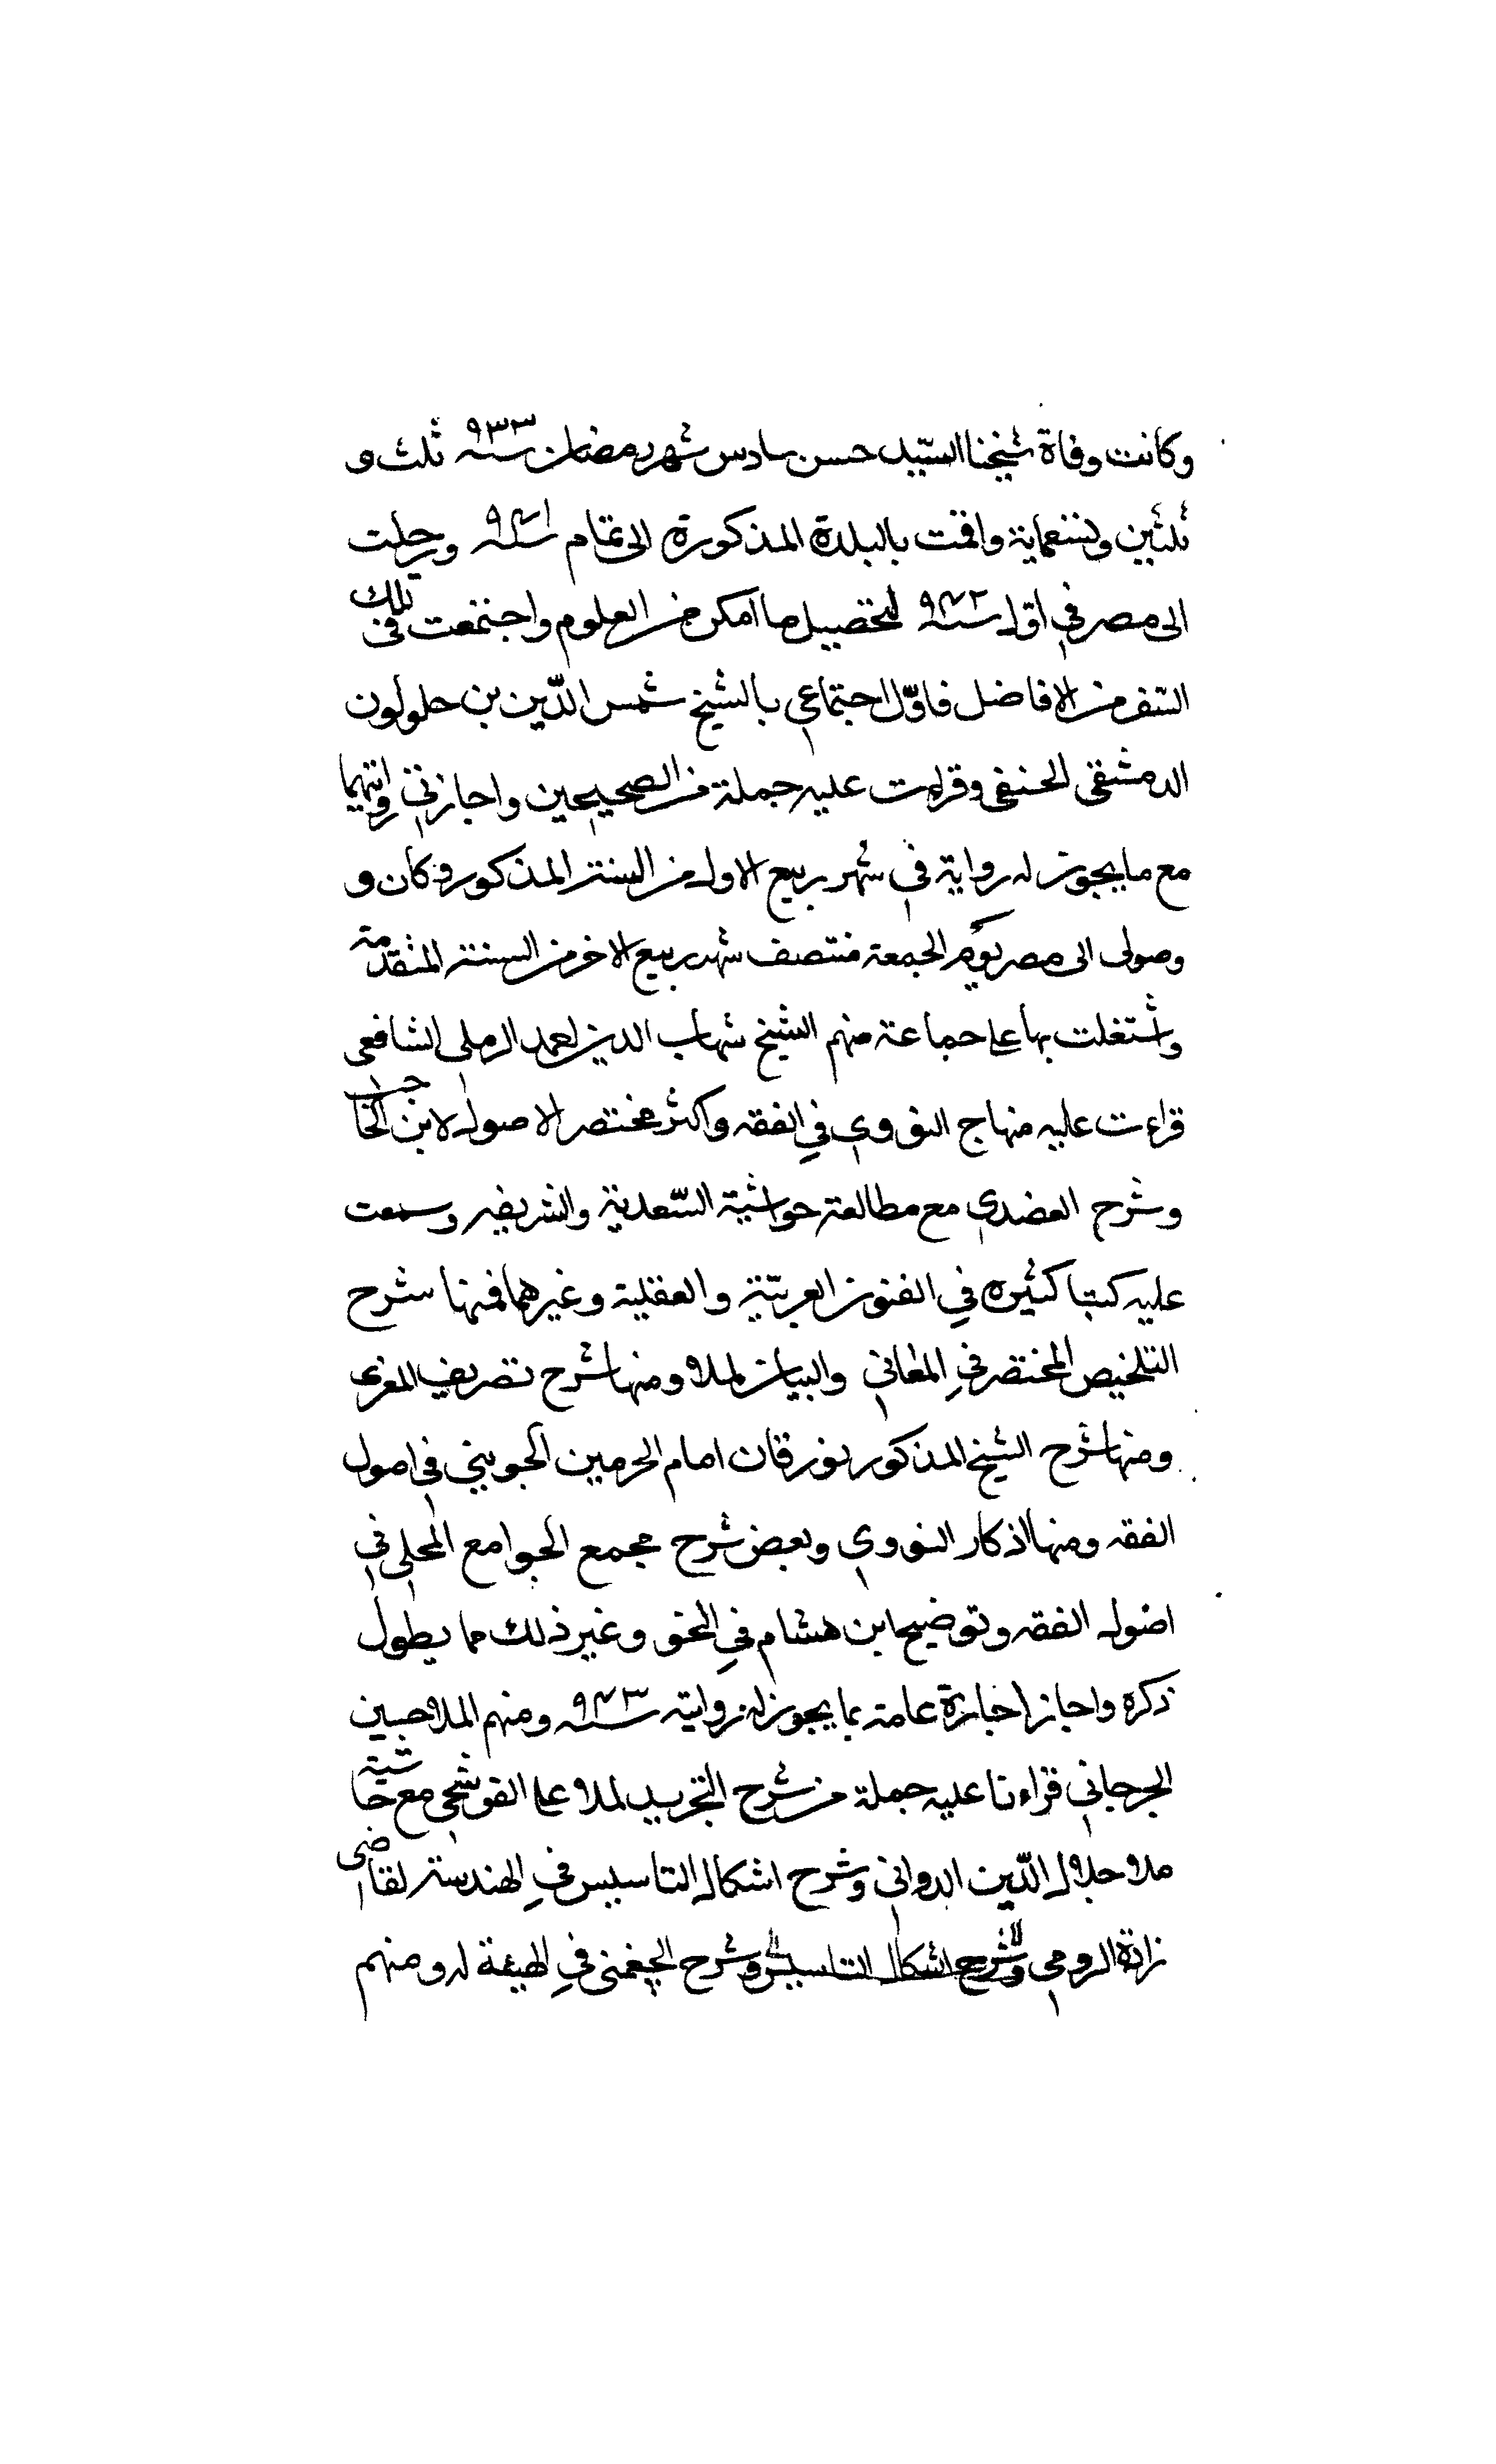 وكانت وفاة شيخنا السّيد حسن سادس شهر رمضان سنة ٩٣٣ ثلث و
ثلثين وتسعماية واقمت بالبلدة المذكورة الى تمام سنة ٩٤١ ورحلت
الى مصر في اول سنة ٩٤٢ لتحصيل ما امكن من العلوم واجتمعت في تلك
السّفر من الافاضل فاوّل اجتماعي بالشيخ شمس الدّين بن طولون
الدمشقى الحنفى وقراءت عليه جملة من الصحيحين واجازنى روايتهما
مع ما يجوز له رواية في شهر ربيع الاول من السنة المذكورة وكان و
وصولى الى مصر يوم الجمعة منتصف شهر ربيع الاخر من السنة المتقدمة
واشتغلت بها على جماعة منهم الشيخ شهاب الدين احمد الرملى الشافعى
قراءت عليه منهاج النووى في الفقه واكثر مختصر الاصول لابن الحاجب
وشرح العضدى مع مطالعة حواشية السّعدية والشريفيه وسمعت
عليه كتبا كثيره في الفنون العربيّة والعقلية وغيرهما فمنها شرح
التلخيص المختصر في المعانى والبيان لملا ومنها شرح تصريف العزى
ومنها شرح الشيخ المذكور لورقات امام الحرمين الجوينى في اصول
الفقه ومنها اذكار النووى وبعض شرح جمع الجوامع المحلى في
اصول الفقه وتوضيح ابن هشام في النحو وغير ذلك مما يطول
ذكره واجاز اجازة عامة بما يجوز له روايته سنة ٩٤٣ ومنهم الملا حسين
الجرجانى قراءنا عليه جملة من شرح التجريد لملا على القوشجى مع حاشية
ملا جلال الدّين الدوانى وشرح اشكال التاسيس في الهندسة لقاضى
زادة الرومى وشرح اشكال التاسيس وشرح الچغمنى في الهيئة له ومنهم